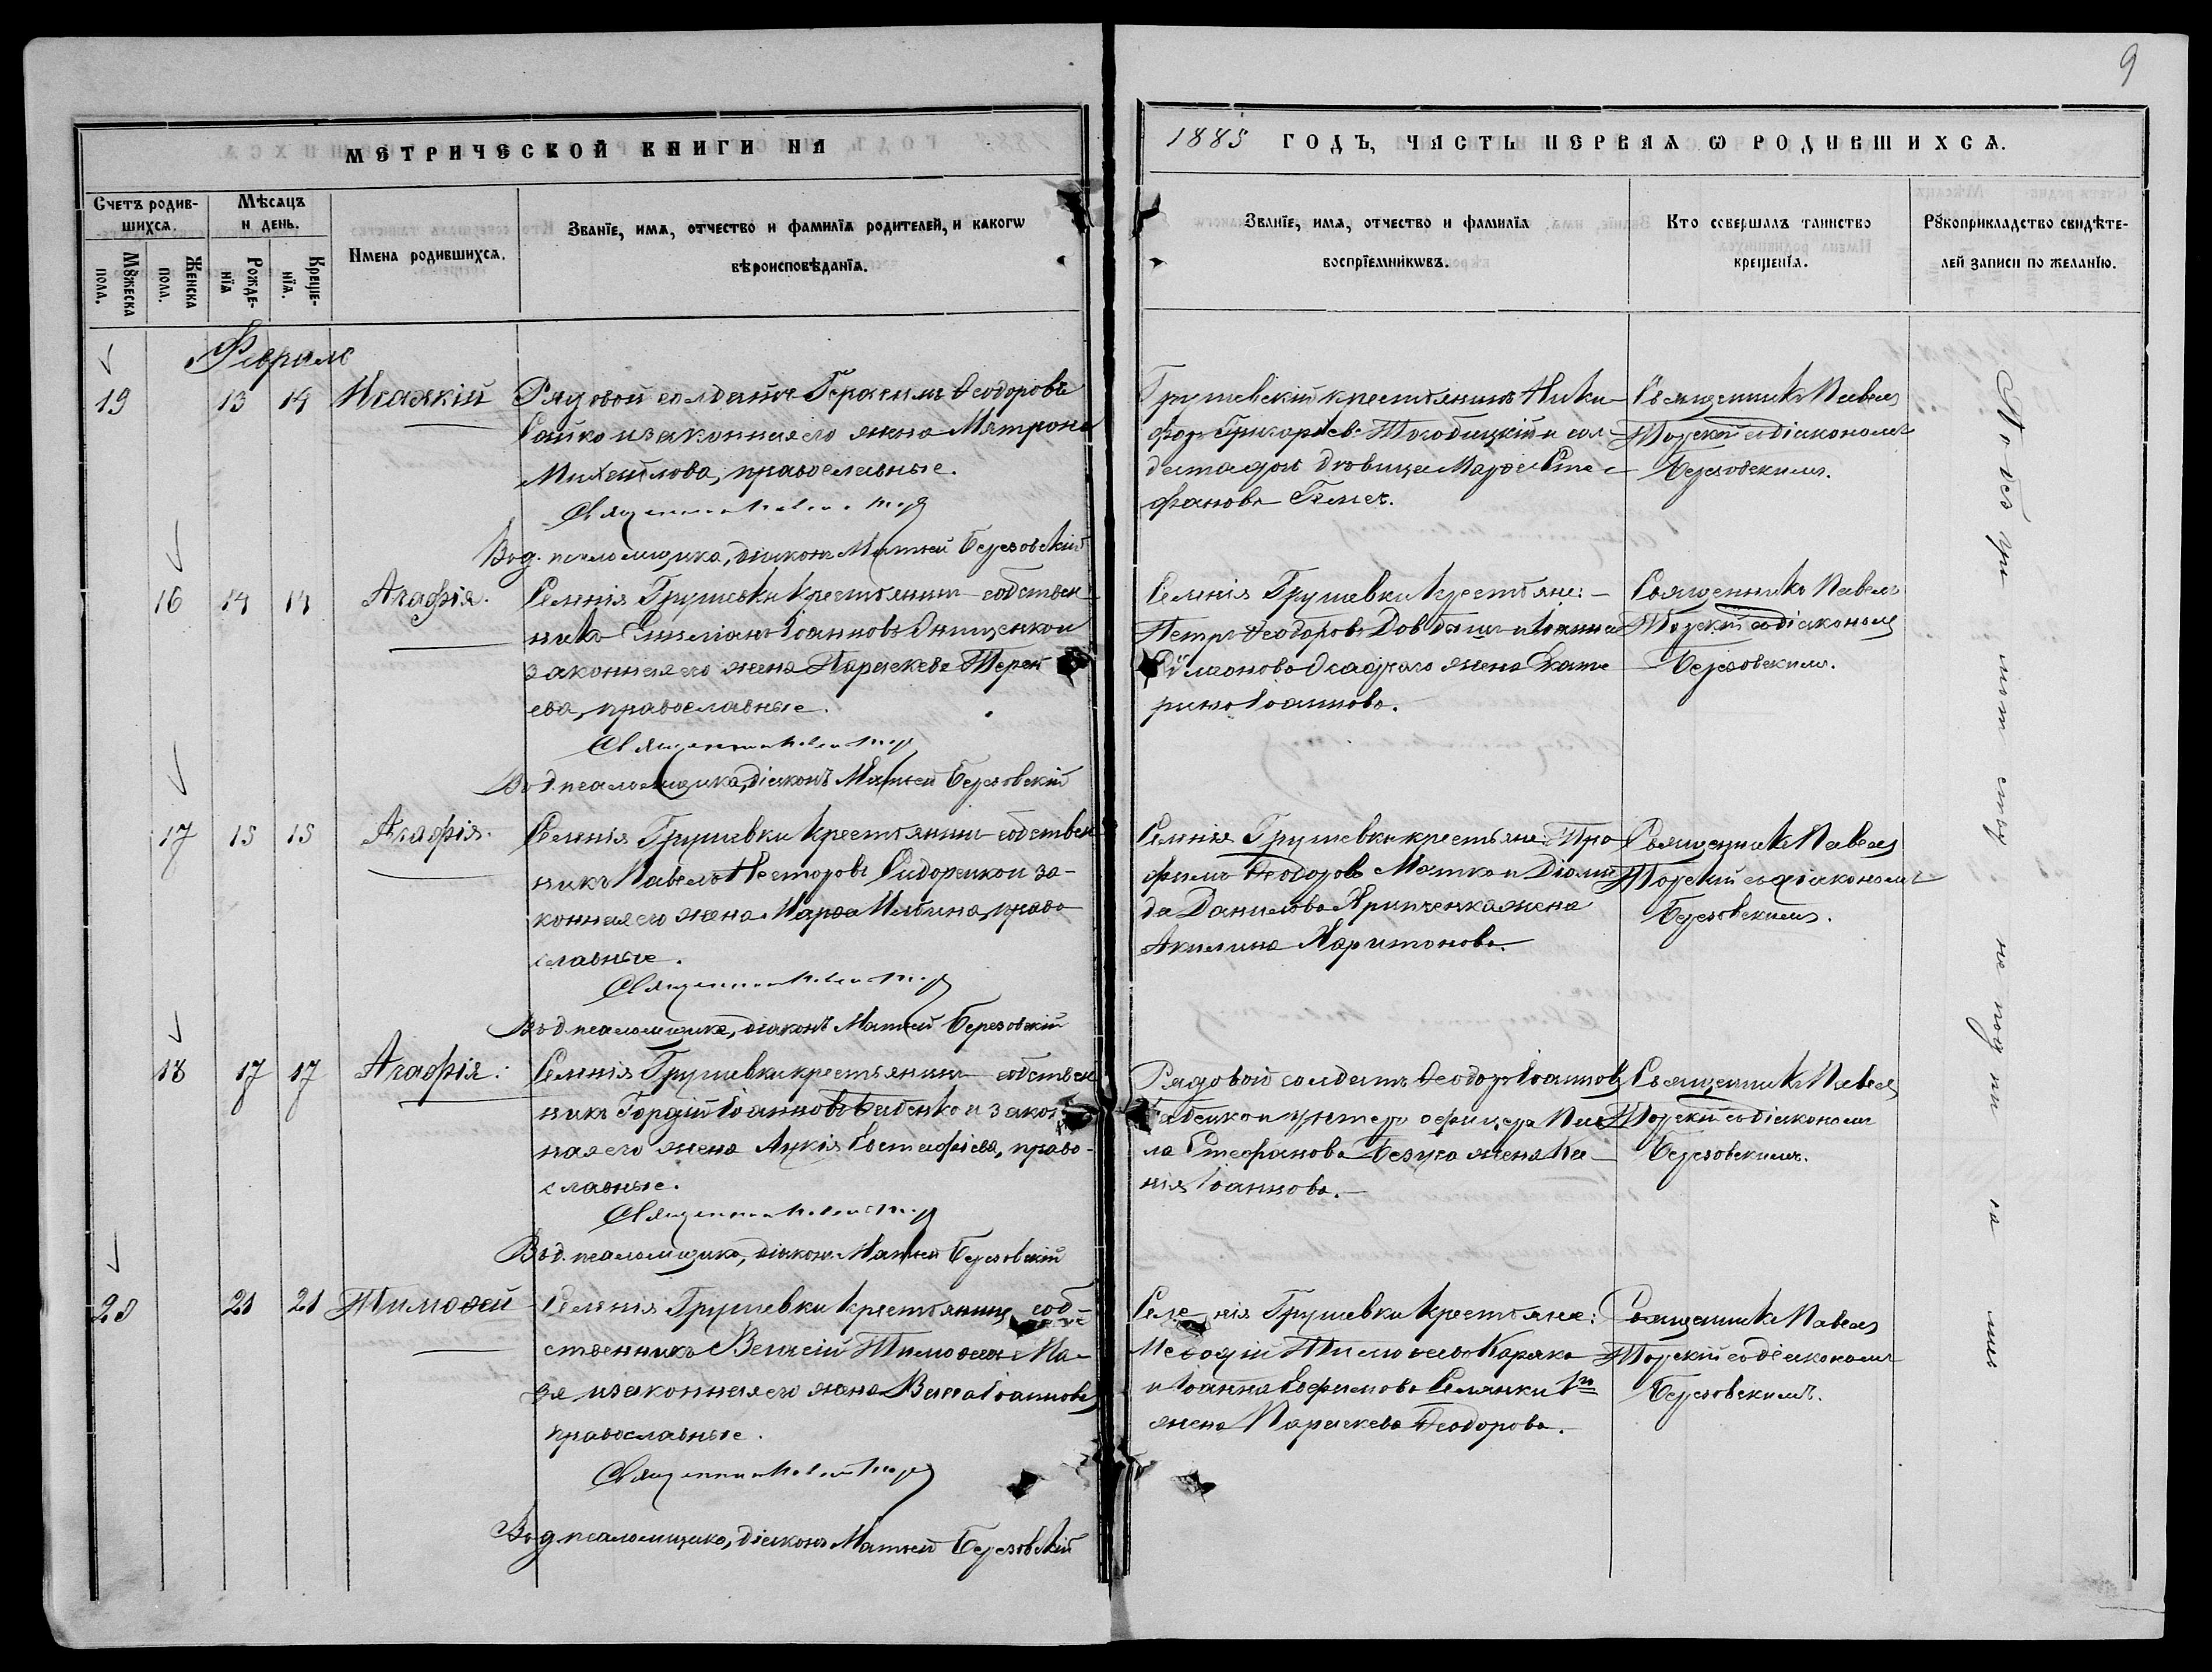 9
МЕТРИЧЕСКОЙ КНИГИ НА
1885 ГОДЪ, ЧАСТЬ ПЕРВАѦ Ѡ РОДИВШИХСѦ.
Счетъ родив-
шихсѧ.
Мѣсѧцъ
и день.
Мꙋжеска
пола.
Женска
пола.
Рожде-
нїѧ
Креще-
нїѧ.
Имена родившихсѧ.
Званїе, имѧ, отчество и фамилїѧ родителей, и какогѡ
вѣроисповѣданїѧ.
Званїе, имѧ, отчество и фамилїѧ
воспрїемникѡвъ.
Кто совершалъ таинство
крещенїѧ.
Рꙋкоприкладство свидѣте-
лей записи по желанїю.
Февраль
19 13 14 Исаакій
Рядовой солдатъ Герасимъ Ѳеодоровъ
Сайко и законная его жена Матрона
Михайлова, православные.
Священникъ Павелъ
Вод. псаломщика, діаконъ Матѳей Березовскій
Грушевскій крестьянинъ Ники-
форъ Григорьевъ и сол-
датская дочь дѣвица Марѳа Сте-
фанова
Священникъ Павелъ
съ діакономъ
Березовскимъ.
16 14 14 Агафія.
Селенія Грушевки крестьянинъ-собствен-
никъ Емеліанъ Іоанновъ Онищенко и
законная его жена Параскева Терен
ева, православные.
Священникъ Павелъ
Вод. псаломщика, діаконъ Матѳей Березовскій
Селенія Грушевки крестьяне:
Петръ Ѳеодоровъ и Іоанна
жена Екате
рина Іоаннова.
Священникъ Павелъ
съ діакономъ
Березовскимъ.
17 15 15 Агафія.
Селенія Грушевки крестьянинъ-собствен
никъ Павелъ Несторовъ Сидоренко и за-
конная его жена Марѳа Ильина, право
славные.
Священникъ Павелъ
Вод. псаломщика, діаконъ Матѳей Березовскій
Селенія Грушевки крестьяне: Тро
фимъ Ѳеодоровъ Матко и Діоми
да Данилова Хрипченка жена
Акилина Харитонова.
Священникъ Павелъ
съ діакономъ
Березовскимъ.
18 17 17 Агафія.
Селенія Грушевки крестьянинъ собствен
никъ Гордій Іоанновъ Бабенко и закон
ная его жена Лукія Евстафіева, право-
славные.
Священникъ Павелъ
Вод. псаломщика, діаконъ Матѳей Березовскій
Рядовой солдатъ Ѳеодоръ Іоанновъ
Бабенко и унтеръ офицера
ла Стефанова жена Ксе
нія Іоаннова.
Священникъ Павелъ
съ діакономъ
Березовскимъ.
20 21 21 Тимоѳей
Селенія Грушевки крестьянинъ соб-
ственникъ Василій Тимоѳеевъ Ма-
зя и законная его жена Васса Іоаннова
православные.
Священникъ Павелъ
Вод. псаломщика, діаконъ Матѳей Березовскій
Селенія Грушевки крестьяне:
Меѳодій Тимоѳеевъ
и Іоанна Ефимова
жена Параскева Ѳеодорова.
Священникъ Павелъ
съ діакономъ
Березовскимъ.